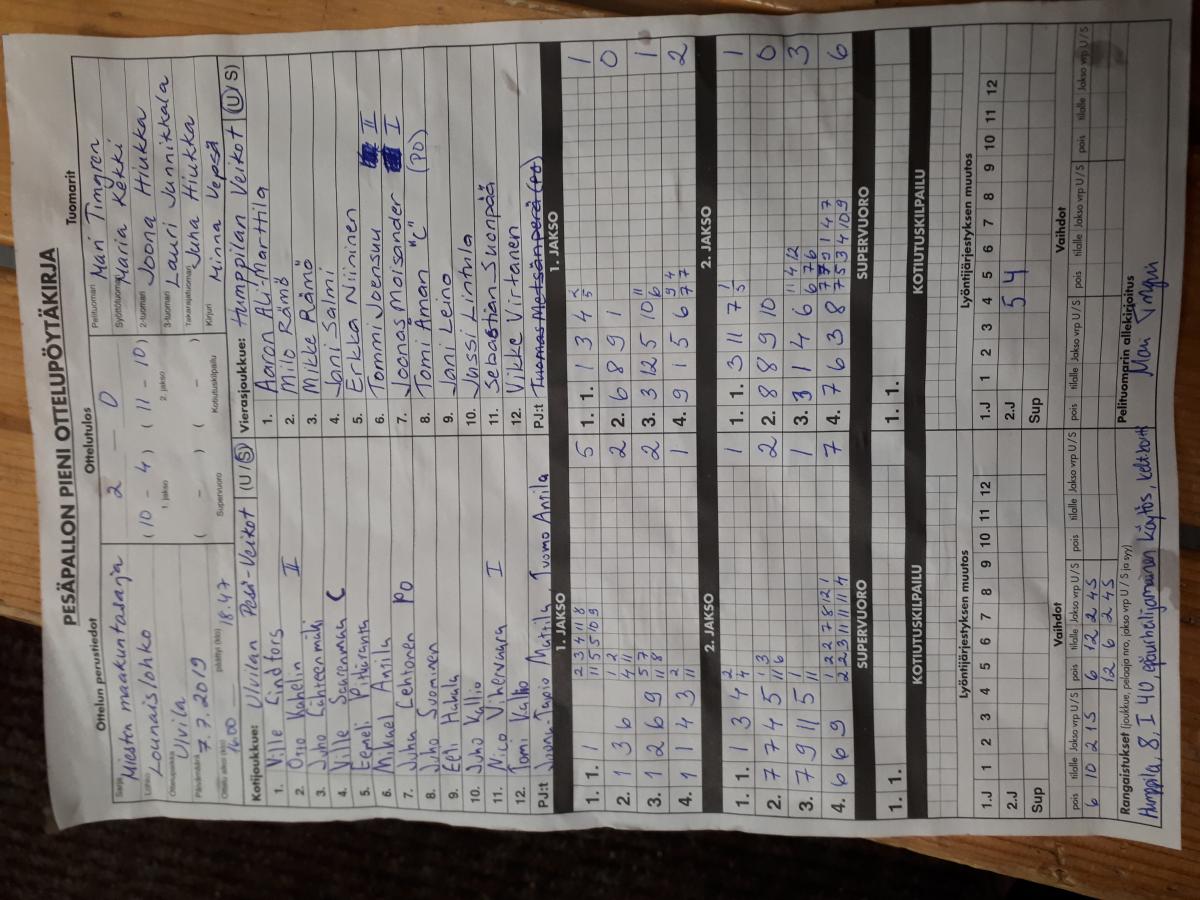 PESÄPALLON PIENI OTTELUPÖYTÄKIRJA
Ottelun perustiedot
Sarja Miesten maakuntasarja
Lohko Lounaislohko
Ottelupaikka Ulvila
Päivämäärä 7.7.2019
Ottelu alkoi (klo) 16.00 päättyi (klo) 18.47
Ottelutulos
2 — 0
(10 - 4) (11 - 10)
1. jakso 2. jakso
( - ) ( - )
Supervuoro Kotiutuskilpailu
Tuomarit
Pelituomari Mari Timgren
Syöttötuomari Maria Kekki
2-tuomari Joona Hiukka
3-tuomari Lauri Junnikkala
Takarajatuomari Juha Hiukka
Kirjuri Minna Vepsä
Kotijoukkue: Ulvilan Pesä-Veikot (U/S)
1. Ville Lindfors
2. Otto Kahelin II
3. Juho Lähteenmäki
4. Ville Saarenmaa C
5. Eemeli Pitkäranta
6. Mikael Aniila
7. Juha Lehtonen PO
8. Juho Suominen
9. Eeli Hakala
10. Juho Kallio
11. Nico Vihervaara I
12. Tomi Kallio
PJ:t Juoni-Tapio Mattila, Tuomo Anttila
Vierasjoukkue: Humppilan Veikot (U/S)
1. Aaron Ali-Marttila
2. Milo Rämö
3. Mikke Rämö
4. Jani Salmi
5. Erkka Niininen
6. Tommi Joensuu II
7. Joonas Moisander I
8. Tomi Åman "C" (PO)
9. Jani Leino
10. Jussi Lintula
11. Sebastian Suonpää
12. Vikke Virtanen
PJ:t Tuomas Metsänperä (PO)
1. JAKSO 1. JAKSO
1. 1. 1 2 3 4 11 8 5
11 5 5 10 9
2. 1 3 6 1 2 2
4 11
3. 1 2 6 9 5 7 2
11 8
4. 1 1 4 3 2 1
11
1. 1. 1 3 4 2 1
5
2. 6 8 9 1 0
3. 3 12 5 10 11 1
6
4. 9 1 5 6 9 4 2
7 7
2. JAKSO 2. JAKSO
1. 1. 1 3 4 2 1
4
2. 7 7 4 5 1 3 2
11 6
3. 7 9 11 5 1 1
11
4. 6 6 9 1 2 2 7 8 12 1 7
2 2 3 11 11 11 4
1. 1. 3 11 7 1 1
5
2. 8 8 9 10 0
3. 3 1 4 6 11 4 12 3
6 7 6
4. 7 6 3 8 7 7 9 1 4 7 6
7 5 3 4 10 9
SUPERVUORO SUPERVUORO
1. 1. 1. 1.
KOTIUTUSKILPAILU KOTIUTUSKILPAILU
Lyöntijärjestyksen muutos Lyöntijärjestyksen muutos
1.J 1 2 3 4 5 6 7 8 9 10 11 12
2.J
Sup
1.J 1 2 3 4 5 6 7 8 9 10 11 12
2.J 5 4
Sup
Vaihdot Vaihdot
pois tilalle Jakso vrp U/S pois tilalle Jakso vrp U/S pois tilalle Jakso vrp U/S
6 10 2 1 S 6 12 2 4 S
12 6 2 4 S
pois tilalle Jakso vrp U/S pois tilalle Jakso vrp U/S pois tilalle Jakso vrp U/S
Rangaistukset (joukkue, pelaaja nro, jakso vrp U / S ja syy)
Humppila, 8, I 4U, epäurheilijamainen käytös, kelt.kortti
Pelituomarin allekirjoitus
Mari Timgren